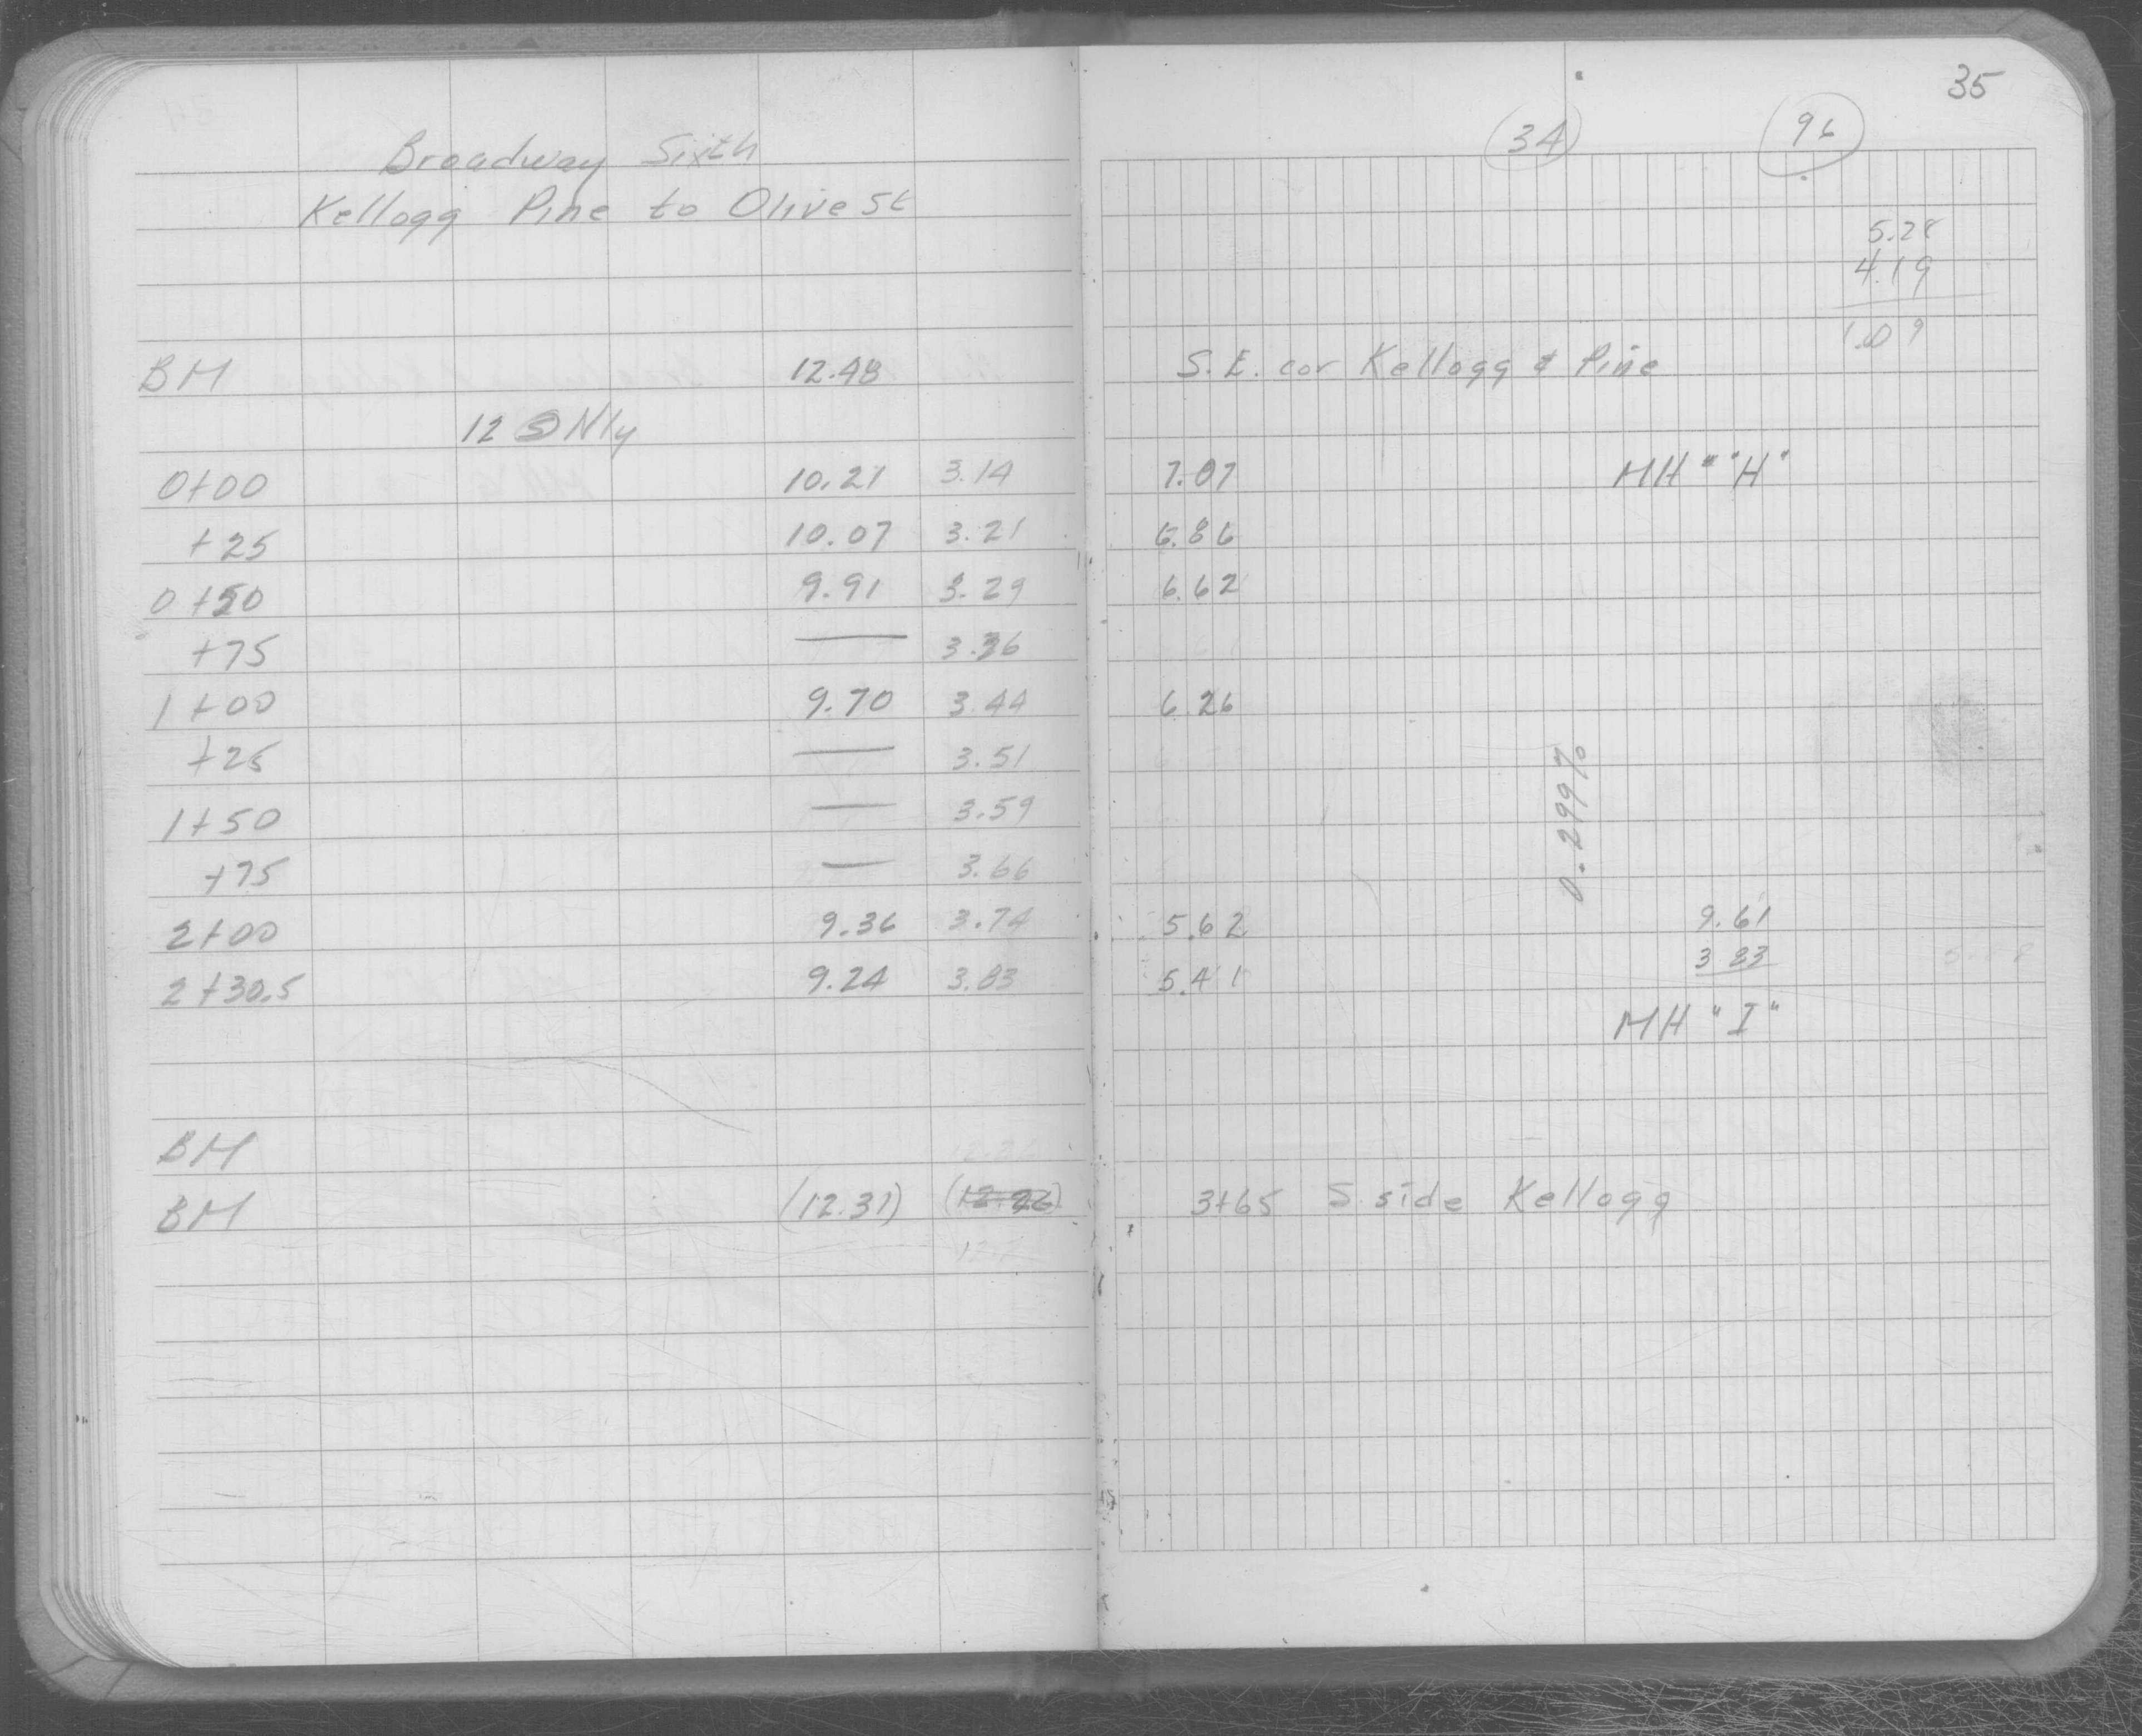 35
34 96
Broadway Sixth
Kellogg Pine to Olive St
5.28
4.19
1.09
BM 12.48 S.E. cor Kellogg & Pine
12 S Nly
0+00 10.21 3.14 7.07 MH " "H"
+25 10.07 3.21 6.86
0+50 9.91 3.29 6.62
+75 — 3.36
1+00 9.70 3.44 6.26
+25 — 3.51
1+50 — 3.59
+75 — 3.66
0.299%
2+00 9.36 3.74 5.62 9.61
2+30.5 9.24 3.83 5.41 3 83
MH "I"
BM
BM (12.31) (12.26) 3+65 S. side Kellogg